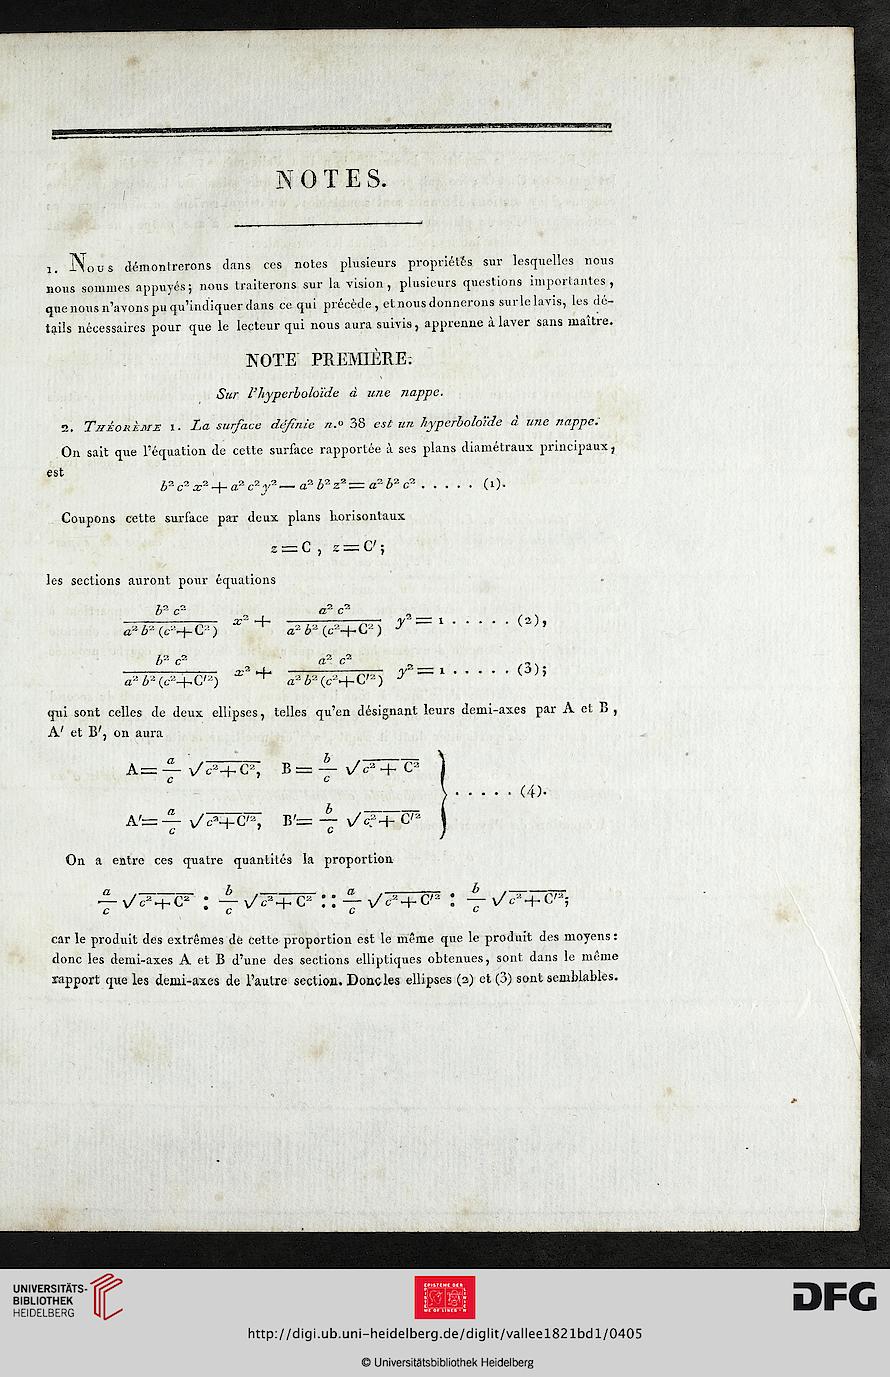 NOTES.
1. Nous démontrerons dans ces notes plusieurs propriétés sur lesquelles nous
nous sommes appuyés; nous traiterons sur la vision, plusieurs questions importantes,
que nous n'avons pu qu'indiquer dans ce qui précède, et nous donnerons sur le lavis, les dé-
tails nécessaires pour que le lecteur qui nous aura suivis, apprenne à laver sans maître.
NOTE PREMIÈRE.
Sur l'hyperboloïde à une nappe.
2. THÉORÈME 1. La surface définie n.º 38 est un hyperboloïde à une nappe.
On sait que l'équation de cette surface rapportée à ses plans diamétraux principaux,
est
b² c² x² + a² c² y² — a² b² z² = a² b² c² . . . . . (1).
Coupons cette surface par deux plans horisontaux
z = C , z = C′ ;
les sections auront pour équations
b² c² / a² b² (c²+C²) x² + a² c² / a² b² (c²+C²) y² = 1 . . . . . (2),
b² c² / a² b² (c²+C′²) x² + a² c² / a² b² (c²+C′²) y² = 1 . . . . . (3);
qui sont celles de deux ellipses, telles qu'en désignant leurs demi-axes par A et B,
A′ et B′, on aura
A = a/c √c²+C², B = b/c √c²+C²
A′= a/c √c²+C′², B′= b/c √c²+C′² } . . . . . (4).
On a entre ces quatre quantités la proportion
a/c √c²+C² : b/c √c²+C² :: a/c √c²+C′² : b/c √c²+C′²;
car le produit des extrêmes de cette proportion est le même que le produit des moyens:
donc les demi-axes A et B d'une des sections elliptiques obtenues, sont dans le même
rapport que les demi-axes de l'autre section. Donc les ellipses (2) et (3) sont semblables.
UNIVERSITÄTS-
BIBLIOTHEK
HEIDELBERG
DFG
http://digi.ub.uni-heidelberg.de/diglit/vallee1821bd1/0405
© Universitätsbibliothek Heidelberg